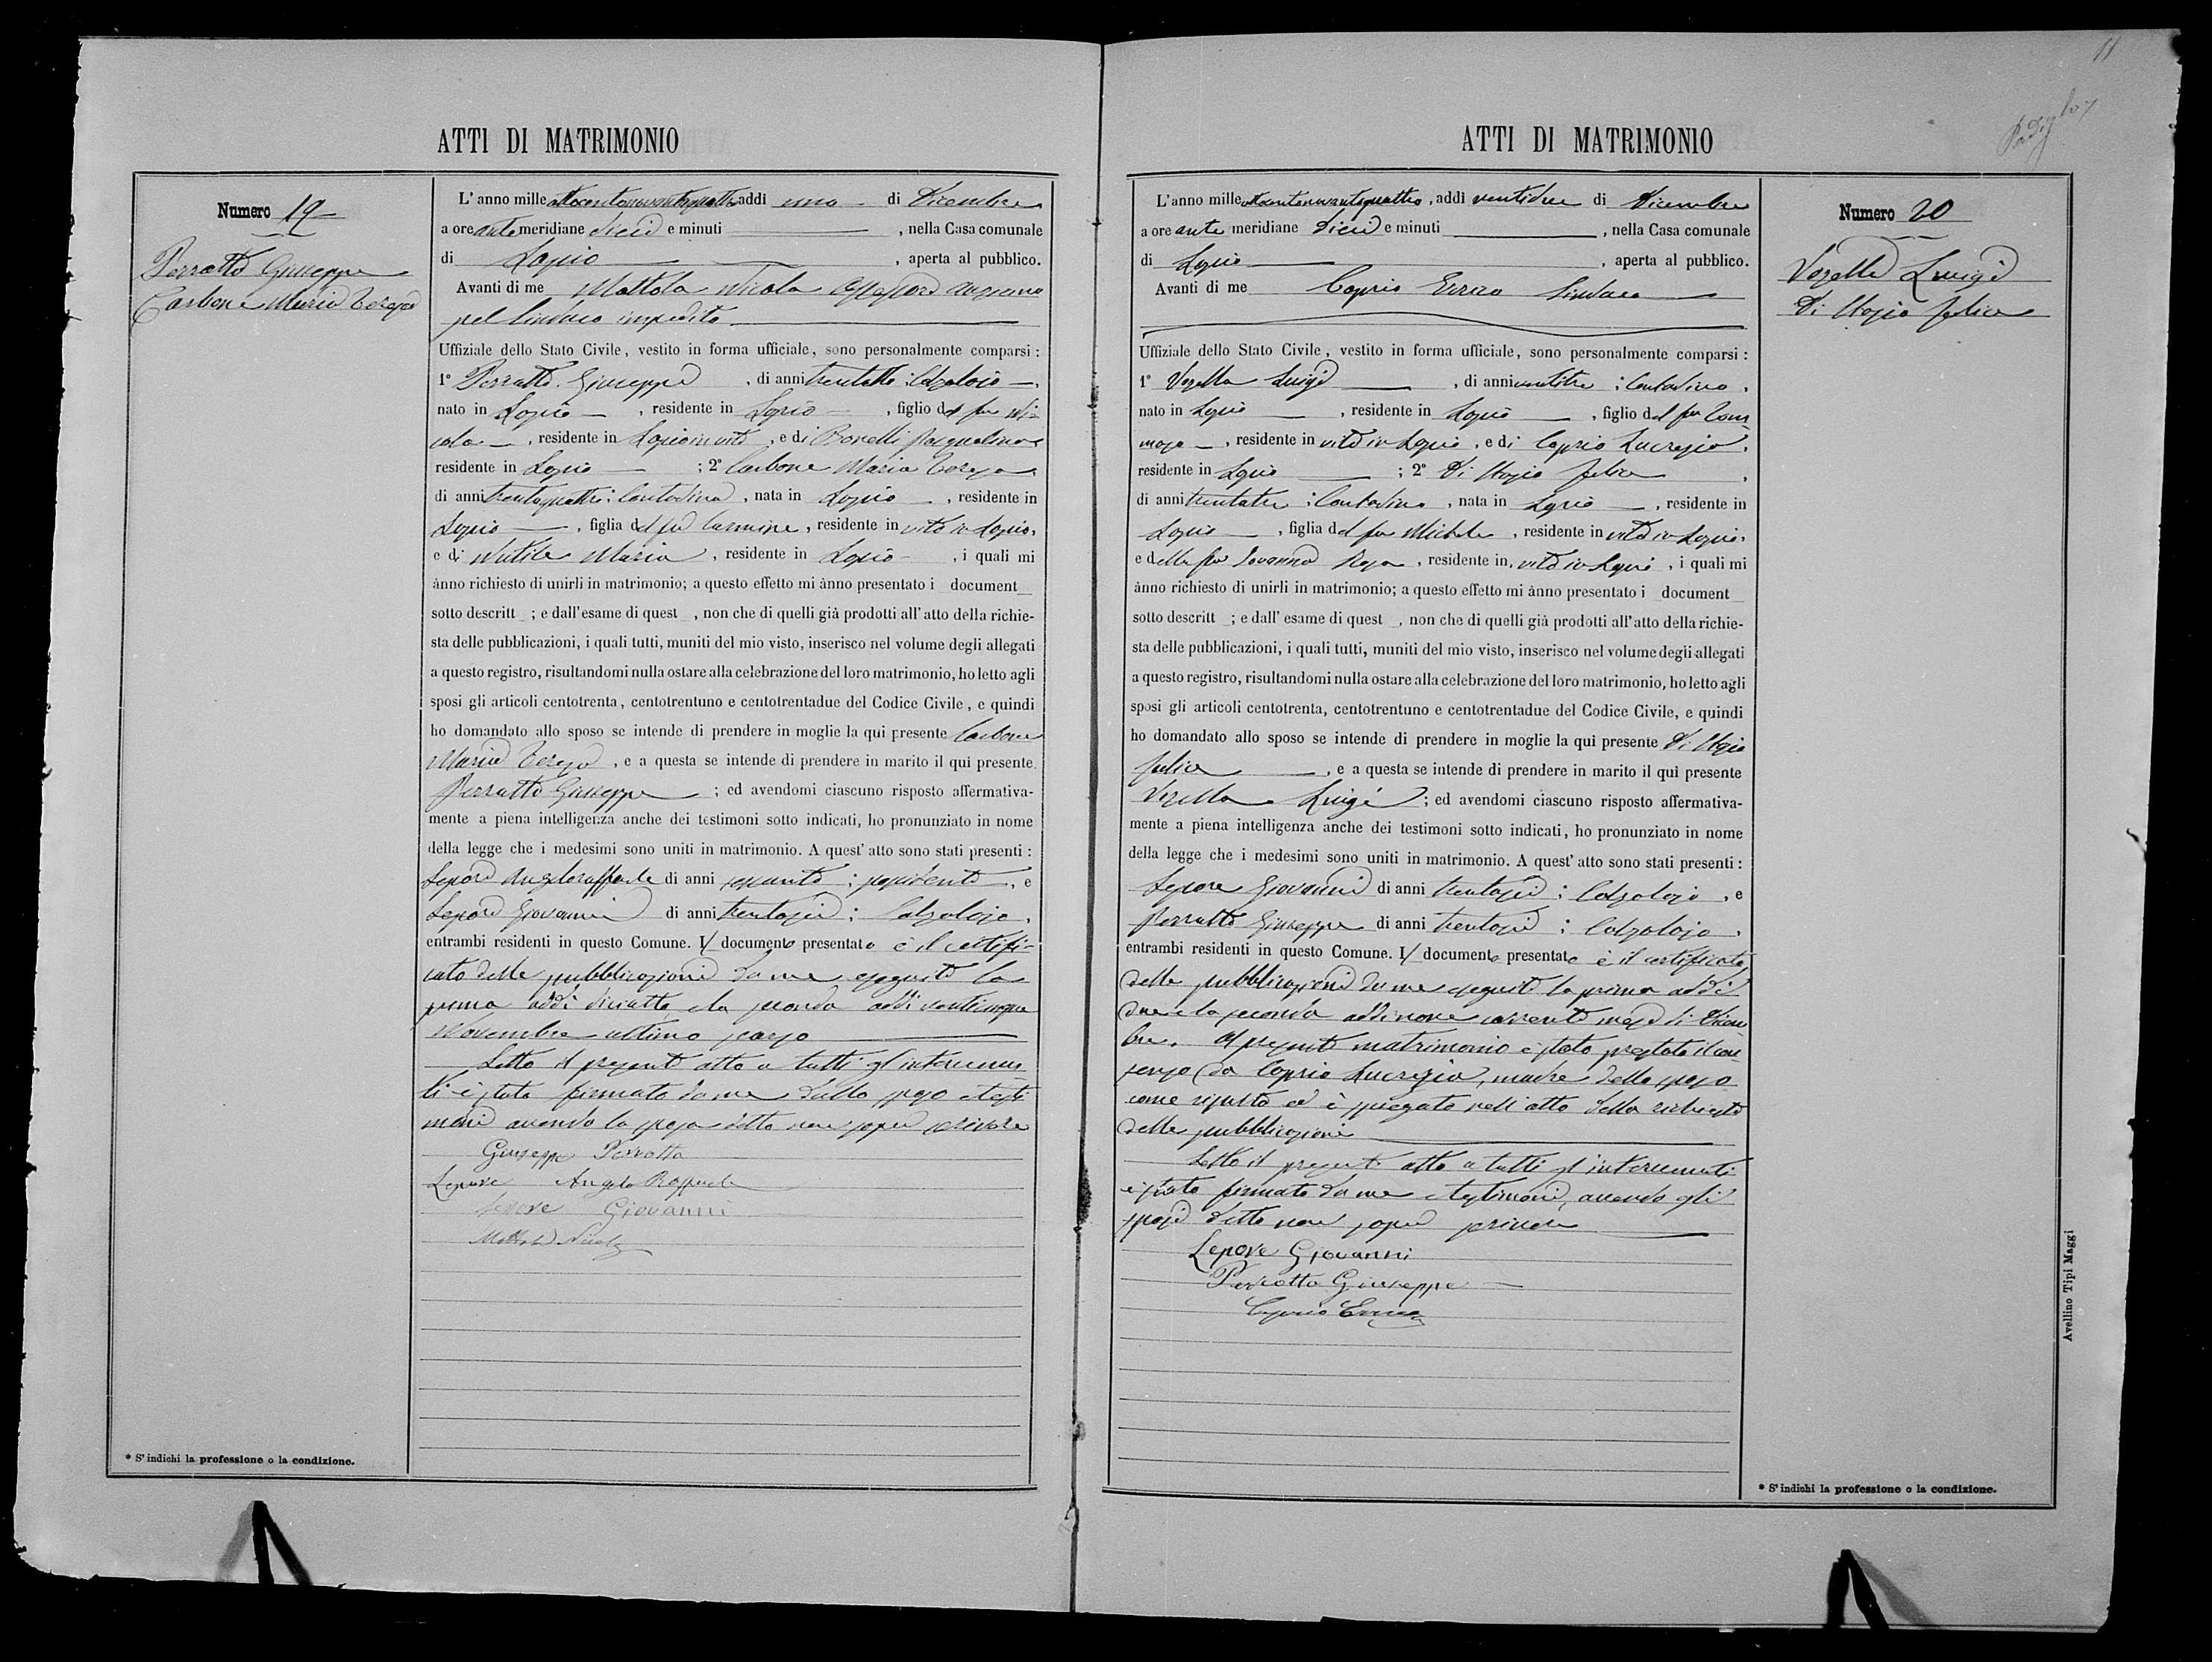 ATTI DI MATRIMONIO
Numero 19
Perrotta Giuseppe
Carbone Maria Teresa
L'anno mille ottocentonovantaquattro addì uno di Dicembre
a ore ante meridiane dieci e minuti , nella Casa comunale
di Lapio , aperta al pubblico.
Avanti di me Mattola Nicola Assessore anziano
pel Sindaco impedito
Uffiziale dello Stato Civile, vestito in forma ufficiale, sono personalmente comparsi:
1° Perrotta Giuseppe , di anni trentotto ; Calzolaio ,
nato in Lapio , residente in Lapio , figlio del fu Ni-
cola , residente in Lapio in vita , e di Bonelli Pasqualina
residente in Lapio ; 2° Carbone Maria Teresa
di anni trentaquattro ; Contadina , nata in Lapio , residente in
Lapio , figlia del fu Carmine , residente in vita in Lapio,
e di Maria , residente in Lapio , i quali mi
ànno richiesto di unirli in matrimonio; a questo effetto mi ànno presentato i document
sotto descritt ; e dall'esame di quest , non che di quelli già prodotti all'atto della richie-
sta delle pubblicazioni, i quali tutti, muniti del mio visto, inserisco nel volume degli allegati
a questo registro, risultandomi nulla ostare alla celebrazione del loro matrimonio, ho letto agli
sposi gli articoli centotrenta, centotrentuno e centotrentadue del Codice Civile, e quindi
ho domandato allo sposo se intende di prendere in moglie la qui presente Carbone
Maria Teresa , e a questa se intende di prendere in marito il qui presente
Perrotta Giuseppe ; ed avendomi ciascuno risposto affermativa-
mente a piena intelligenza anche dei testimoni sotto indicati, ho pronunziato in nome
della legge che i medesimi sono uniti in matrimonio. A quest'atto sono stati presenti:
Lepore Angeloraffaele di anni sessanta ; possidente , e
Lepore Giovanni di anni trentasei ; Calzolajo ,
entrambi residenti in questo Comune. Il documento presentato è il certifi-
cato delle pubblicazioni da me eseguite la
prima addì diciotto, e la seconda addì venticinque
Novembre ultimo scorso
Letto il presente atto a tutti gl'intervenu-
ti è stato firmato da me dallo sposo e testi
moni avendo la sposa detto non saper scrivere
Giuseppe Perrotta
Lepore Angelo Raffaele
Lepore Giovanni
Mattola Nicola
* S'indichi la professione o la condizione.
11
ATTI DI MATRIMONIO
Numero 20
Vozella Luigi
Di Stasio Felice
L'anno mille ottocentonovantaquattro , addì ventidue di Dicembre
a ore ante meridiane dieci e minuti , nella Casa comunale
di Lapio , aperta al pubblico.
Avanti di me Caprio Errico Sindaco
Uffiziale dello Stato Civile, vestito in forma ufficiale, sono personalmente comparsi:
1° Vozella Luigi , di anni ventitre ; Contadino ,
nato in Lapio , residente in Lapio , figlio del fu Tom
maso , residente in vita in Lapio , e di Caprio Lucrezia ,
residente in Lapio ; 2° Di Stasio Felice ,
di anni trentatre ; Contadina , nata in Lapio , residente in
Lapio , figlia del fu Michele , residente in vita in Lapio,
e della fu Iovanna Rosa , residente in vita in Lapio , i quali mi
ànno richiesto di unirli in matrimonio; a questo effetto mi ànno presentato i document
sotto descritt ; e dall'esame di quest , non che di quelli già prodotti all'atto della richie-
sta delle pubblicazioni, i quali tutti, muniti del mio visto, inserisco nel volume degli allegati
a questo registro, risultandomi nulla ostare alla celebrazione del loro matrimonio, ho letto agli
sposi gli articoli centotrenta, centotrentuno e centotrentadue del Codice Civile, e quindi
ho domandato allo sposo se intende di prendere in moglie la qui presente Di Stasio
Felice , e a questa se intende di prendere in marito il qui presente
Vozella Luigi ; ed avendomi ciascuno risposto affermativa-
mente a piena intelligenza anche dei testimoni sotto indicati, ho pronunziato in nome
della legge che i medesimi sono uniti in matrimonio. A quest'atto sono stati presenti:
Lepore Giovanni di anni trentasei ; Calzolajo , e
Perrotta Giuseppe di anni trentasei ; Calzolajo ,
entrambi residenti in questo Comune. Il documento presentato è il certificato
delle pubblicazioni da me eseguite la prima addì
due e la seconda addì nove corrente mese di Dicem
bre. Al presente matrimonio è stato prestato il con
senso da Caprio Lucrezia, madre dello sposo
come risulta ed è spiegato nell'atto della richiesta
delle pubblicazioni
Letto il presente atto a tutti gl'intervenuti
è stato firmato da me e testimoni, avendo gli
sposi detto non saper scrivere
Lepore Giovanni
Perrotta Giuseppe
Caprio Errico
* S'indichi la professione o la condizione.
Avellino Tipi Maggi